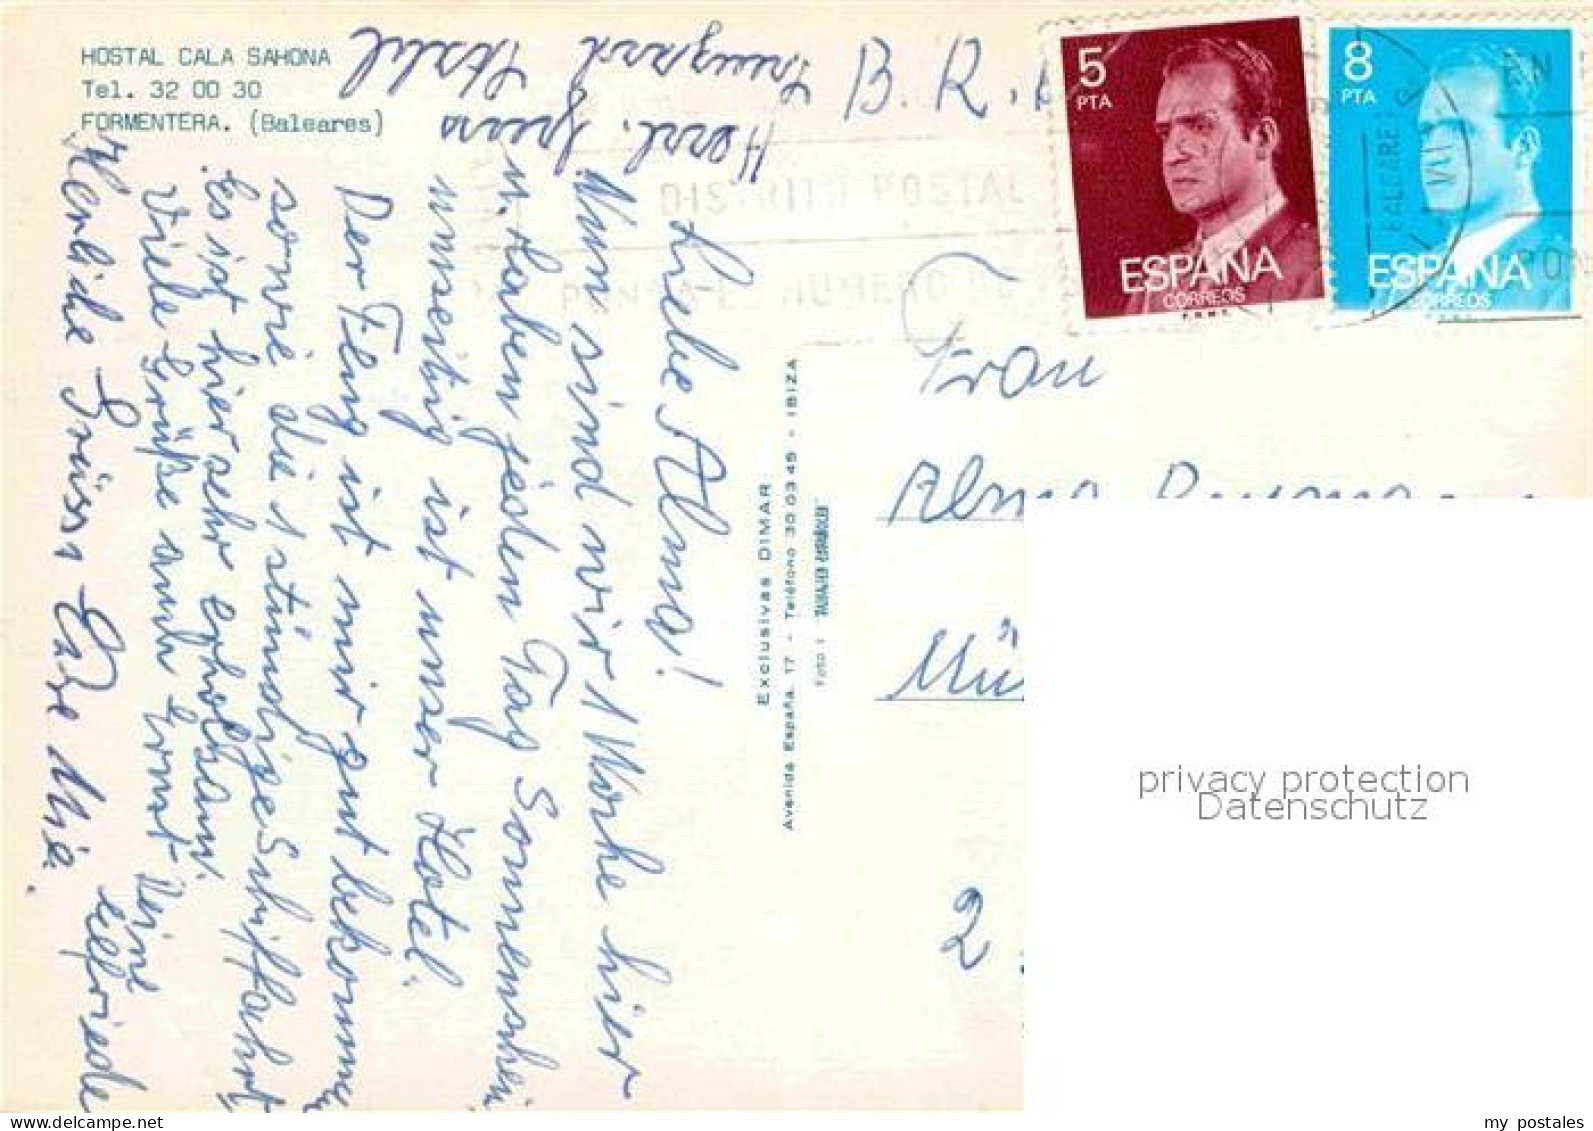 HOSTAL CALA SAHONA
Tel. 32 00 30
FORMENTERA. (Baleares)
Liebe Alma!
Nun sind wir 1 Woche hier
u. haben jeden Tag Sonnenschein
unseitig ist unser Hotel.
Der Flug ist mir gut bekommen
sowie die 1 stündige Schiffahrt
Es ist hier sehr erholsam.
Viele Grüße auch Ernst Deine
Elfriede
Herzliche Grüsse Eure Mia.
Herzl.
Exclusivas DIMAR
Avenida España, 17 - Teléfono 30 03 45 - IBIZA
Foto:
B. R.
5
PTA
ESPAÑA
CORREOS
F.N.M.T.
8
PTA
ESPAÑA
CORREOS
F.N.M.T.
BALEARES
DISTRITO POSTAL
PONGA EL NUMERO DE
EN
PON
Frau
Alma
Mü
2
privacy protection
Datenschutz
www.delcampe.net
my_postales